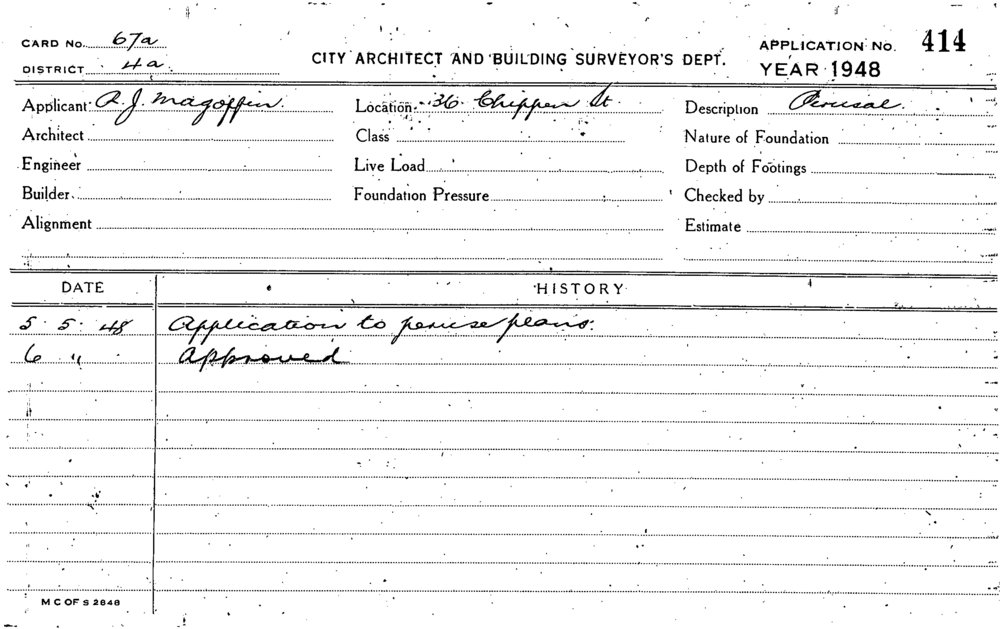 CARD No. 67a
DISTRICT 4a
CITY ARCHITECT AND BUILDING SURVEYOR'S DEPT.
APPLICATION No. 414
YEAR 1948
Applicant R. J. Magoffin. Location 36 Chippen St. Description Perusal.
Architect Class Nature of Foundation
Engineer Live Load Depth of Footings
Builder Foundation Pressure Checked by
Alignment Estimate
DATE HISTORY
5. 5. 48 Application to peruse plans.
6 " Approved
M C OF S 2648